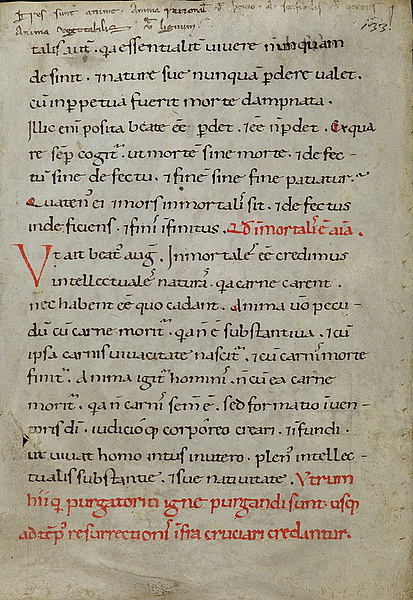 Tres sunt anime. Anima rationał
Anima vegetabilis lignum. 133.
talis aut̄. q̇a essentialit̄ vivere nunquam
desinit. ⁊ nature sue nunquā ꝑdere valet.
cū inꝑpetua fuerit morte dampnata.
Illic eni᷒ posita beate eē ꝑdet. ⁊ eē n̄ ꝑdet. Exqua
re sēꝑ cogit̄. ut morte sine morte. ⁊ defec-
tū sine defectu. ⁊ finē sine fine patiatur.
Quaten᷒ ei ⁊ mors inmortalis sit. ⁊ defectus
indeficiens. ⁊ finis ifinitus. Qd̄ īmortalis ē aīa.
Ut ait beat᷒ aug̅. Inmortalē eē credimus
intellectualē naturā. q̇a carne carent.
nec habent eē quo cadant. Anima v̊o pecu-
dū cū carne morit̄. q̇a n̄ ē substantiva. ⁊ cū
ipsa carnis vivacitate nascit̄. ⁊ cū carnis morte
finit̄. Anima igit̄ hominis. n̄ cū ea carne
morit̄. q̇a n̄ carnis semē ē. sed formatio ⁊ īven-
toris dī. iudicioq; corporeo creari. ⁊ īfundi.
ut vivat homo intus in utero. plen᷒ intellec-
tualis substantie. ⁊ sue nativitate. Utrum
hii q̇ purgatorii igne purgandi sunt. usq;
ad tēp᷒ resurrectionis īfra cruciari credantur.